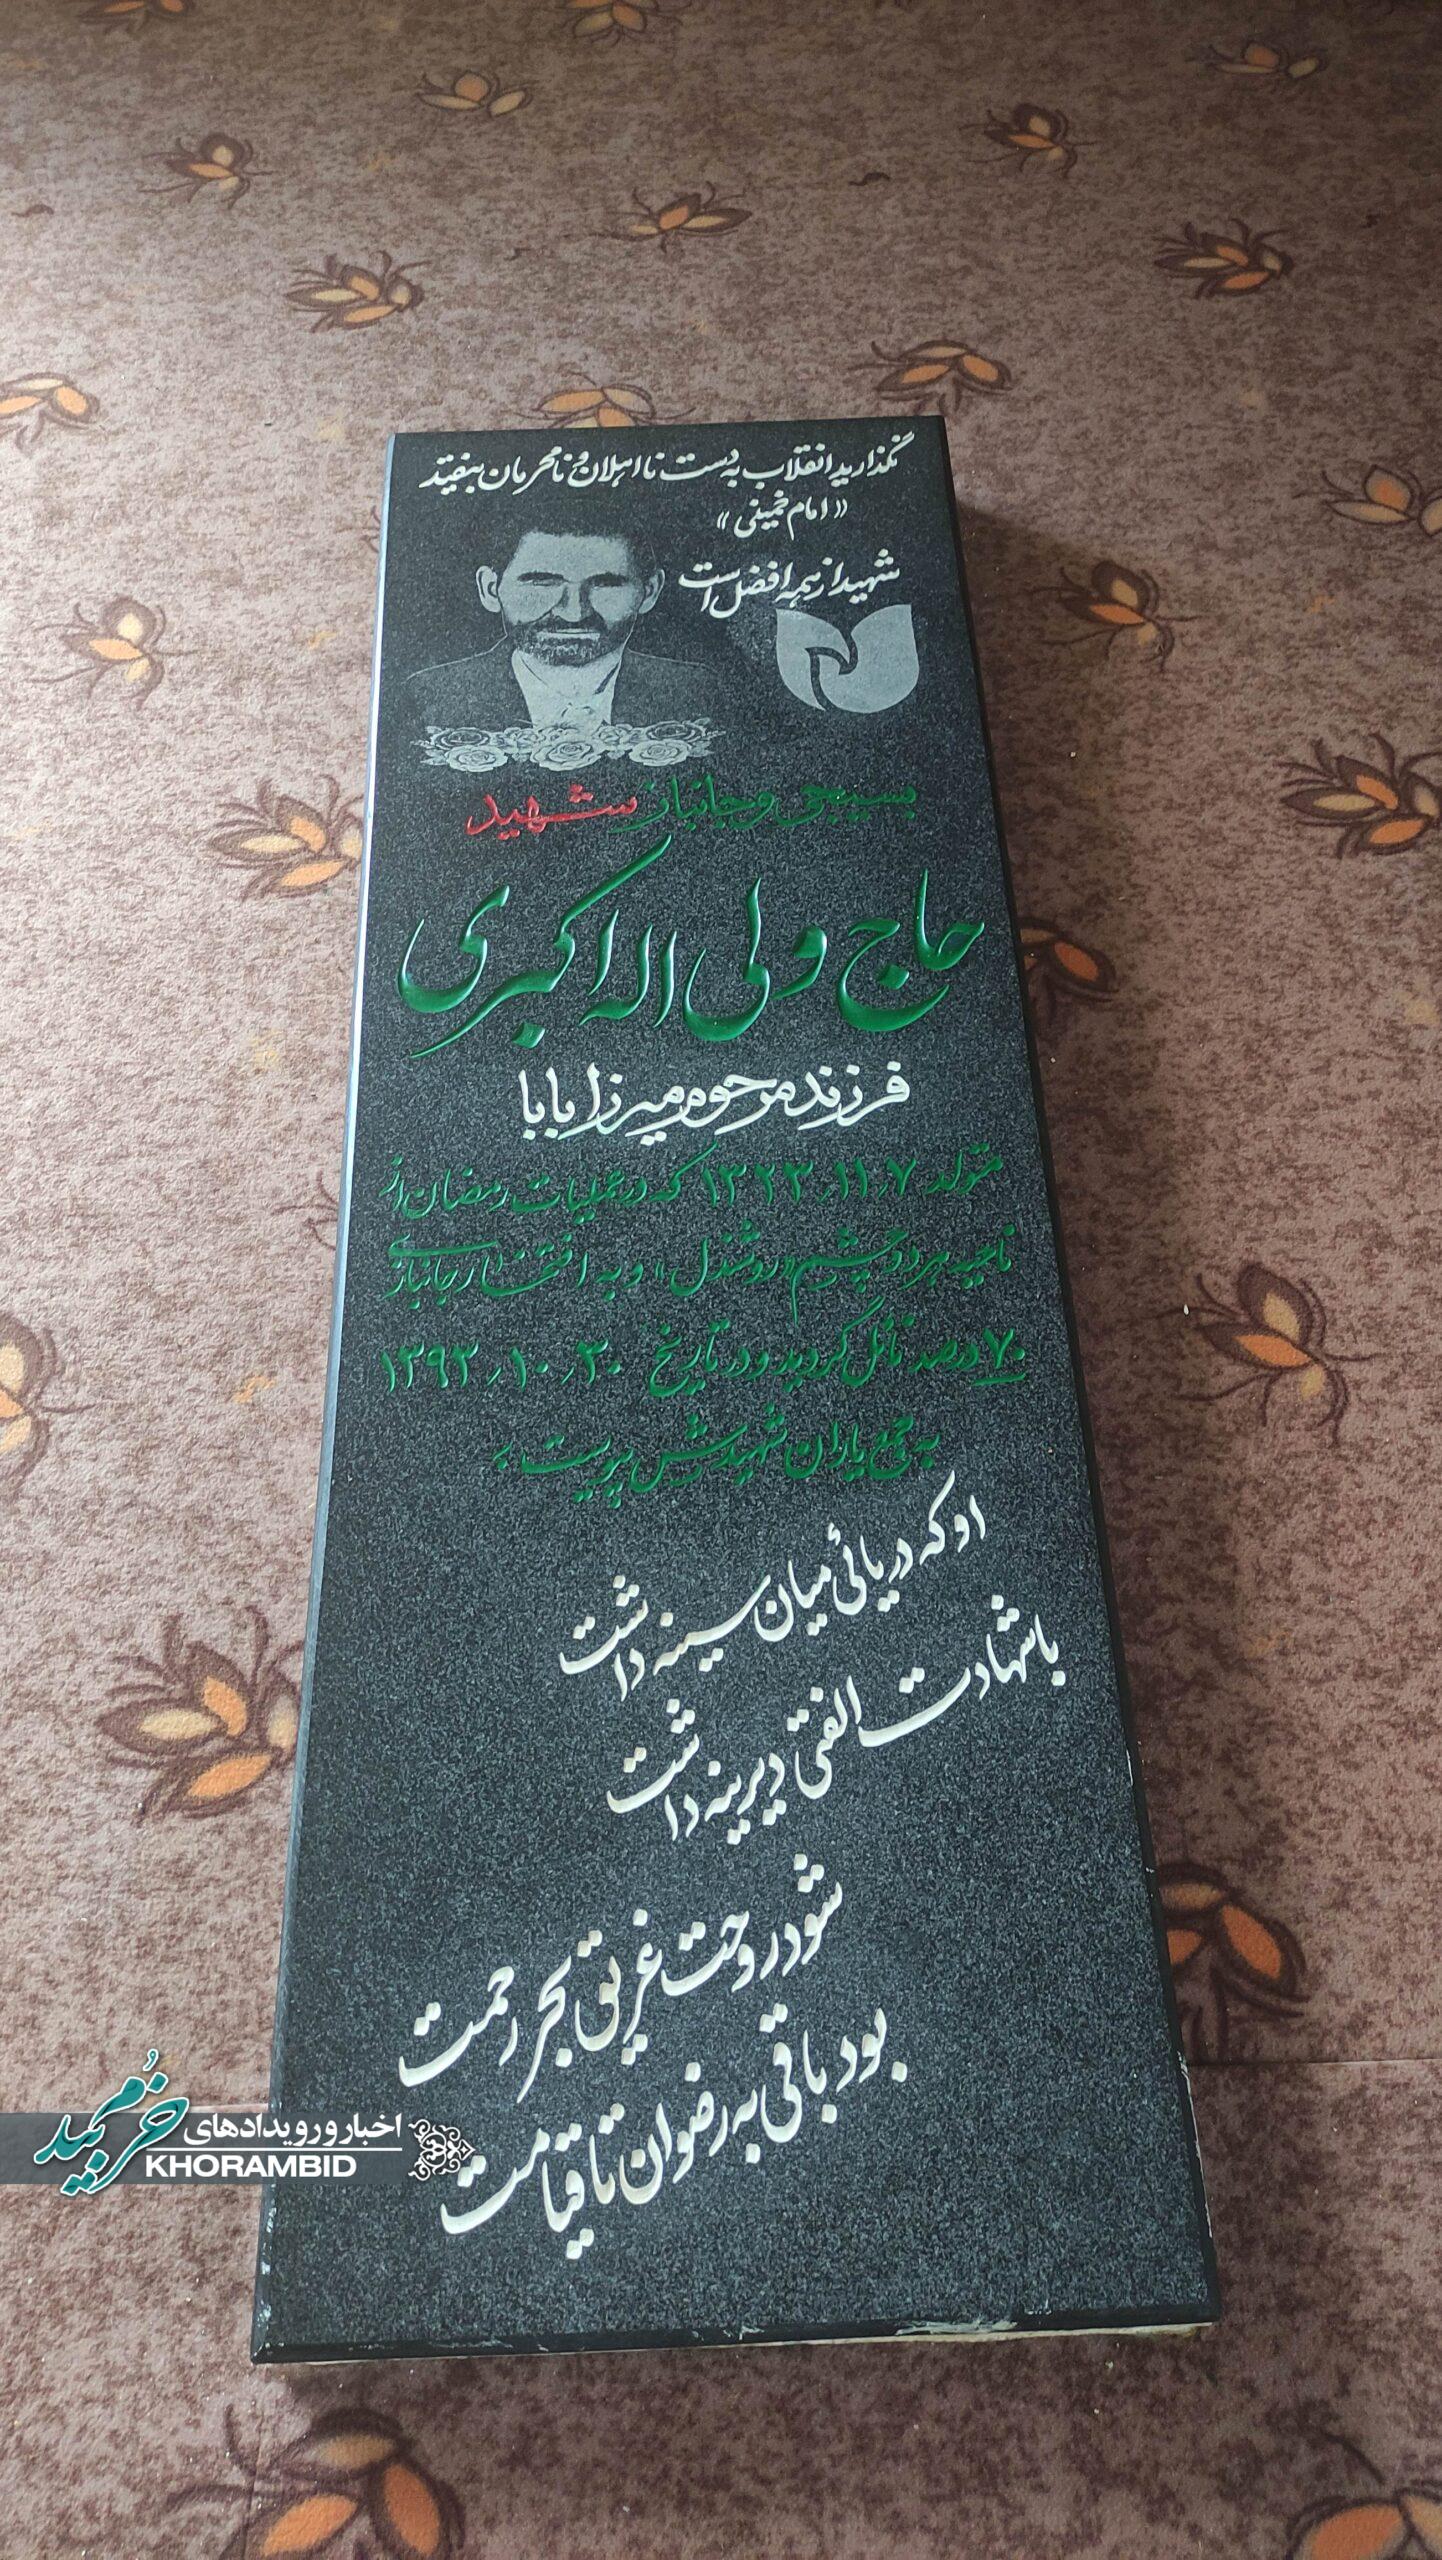 نگذارید انقلاب به دست نااهلان و نامحرمان بیفتد
«امام خمینی»
شهید از همه افضل است
بسیجی و جانباز شهید
حاج ولی اله اکبری
فرزند مرحوم میرزا بابا
متولد ۱۳۲۳٫۱۱٫۷ که در عملیات رمضان از
ناحیه هر دو چشم «روشندل» و به افتخار جانبازی
۷۰ درصد نائل گردید و در تاریخ ۱۳۹۳٫۱۰٫۳۰
به جمع یاران شهیدش پیوست.
او که دریائی میان سینه داشت
با شهادت الفتی دیرینه داشت
شود روحت غریق بحر رحمت
بود باقی به رضوان تا قیامت
اخبار و رویدادهای
خرمبید
KHORAMBID